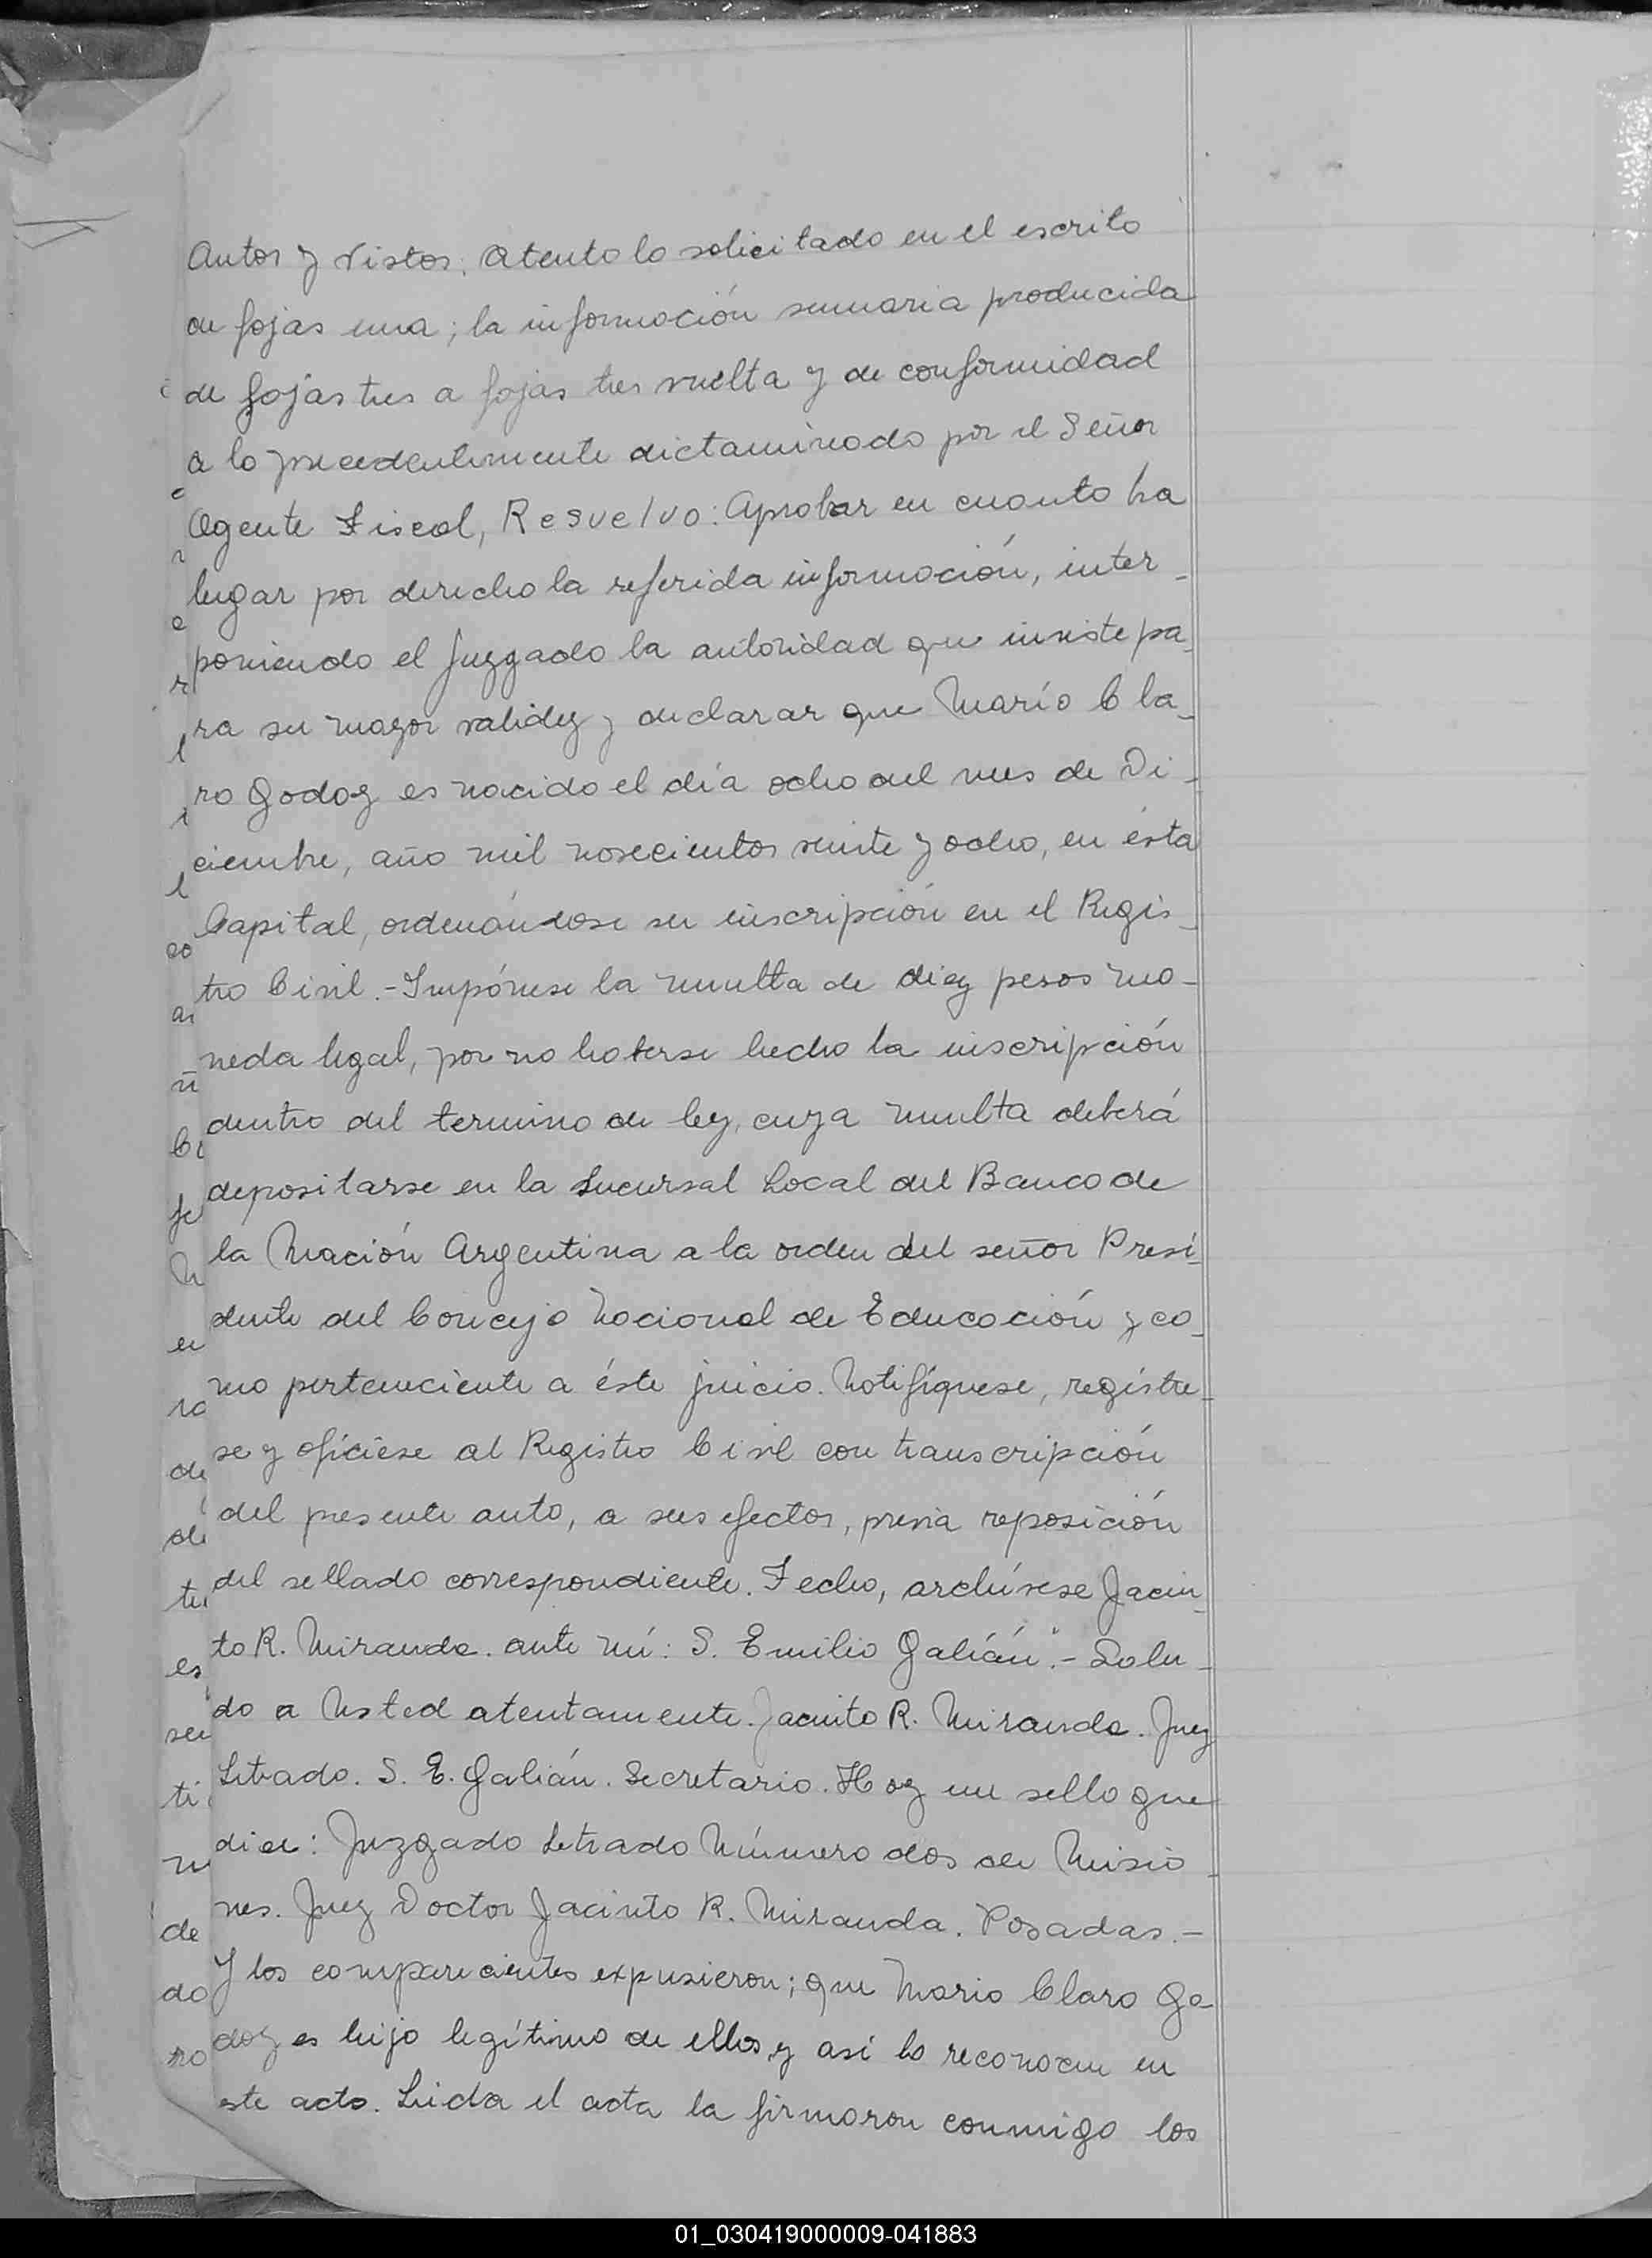 Autos y Vistos: Atento lo solicitado en el escrito
de fojas una; la información sumaria producida
de fojas tres a fojas tres vuelta y de conformidad
a lo precedentemente dictaminado por el Señor
Agente Fiscal, Resuelvo: Aprobar en cuanto ha
lugar por derecho la referida información, inter-
poniendo el Juzgado la autoridad que inviste pa-
ra su mayor validez y declarar que Mario Cla-
ro Godoy es nacido el día ocho del mes de Di-
ciembre, año mil novecientos veinte y ocho, en ésta
Capital, ordenándose su inscripción en el Regis-
tro Civil.- Impónese la multa de diez pesos mo-
neda legal, por no haberse hecho la inscripción
dentro del termino de ley, cuya multa deberá
depositarse en la Sucursal Local del Banco de
la Nación Argentina a la orden del señor Presi-
dente del Concejo Nacional de Educación y co-
mo perteneciente a éste juicio. Notifíquese, regístre-
se y ofíciese al Registro Civil con transcripción
del presente auto, a sus efectos, previa reposición
del sellado correspondiente. Fecho, archívese Jacin-
to R. Miranda. ante mí: S. Emilio Galián".- Salu-
do a Usted atentamente. Jacinto R. Miranda. Juez
Letrado. S. E. Galián. Secretario. Hay un sello que
dice: Juzgado Letrado Número dos de Misio-
nes. Juez Doctor Jacinto R. Miranda. Posadas.-
Y los comparecientes expusieron; que Mario Claro Go-
doy es hijo legítimo de ellos y así lo reconocen en
este acto. Leida el acta la firmaron conmigo los
01_030419000009-041883